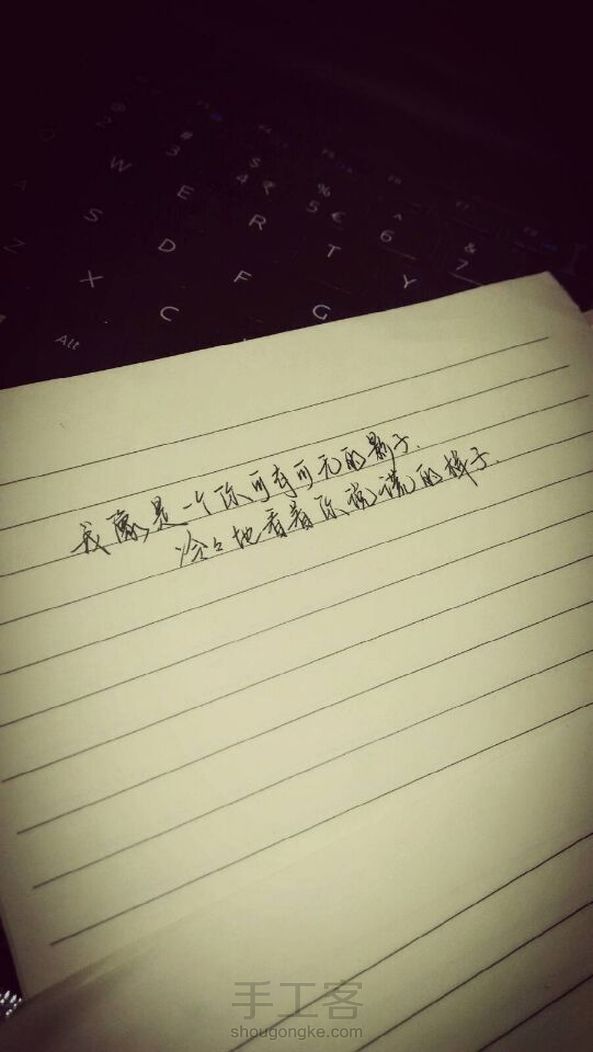 @ 2 # 3 $ 4 ₹ % 5 € ^ 6 & 7
W E R T Y
A S D F G
Z X C
Alt
我像是一个你可有可无的影子.
冷々地看着你说谎的样子.
手工客
shougongke.com